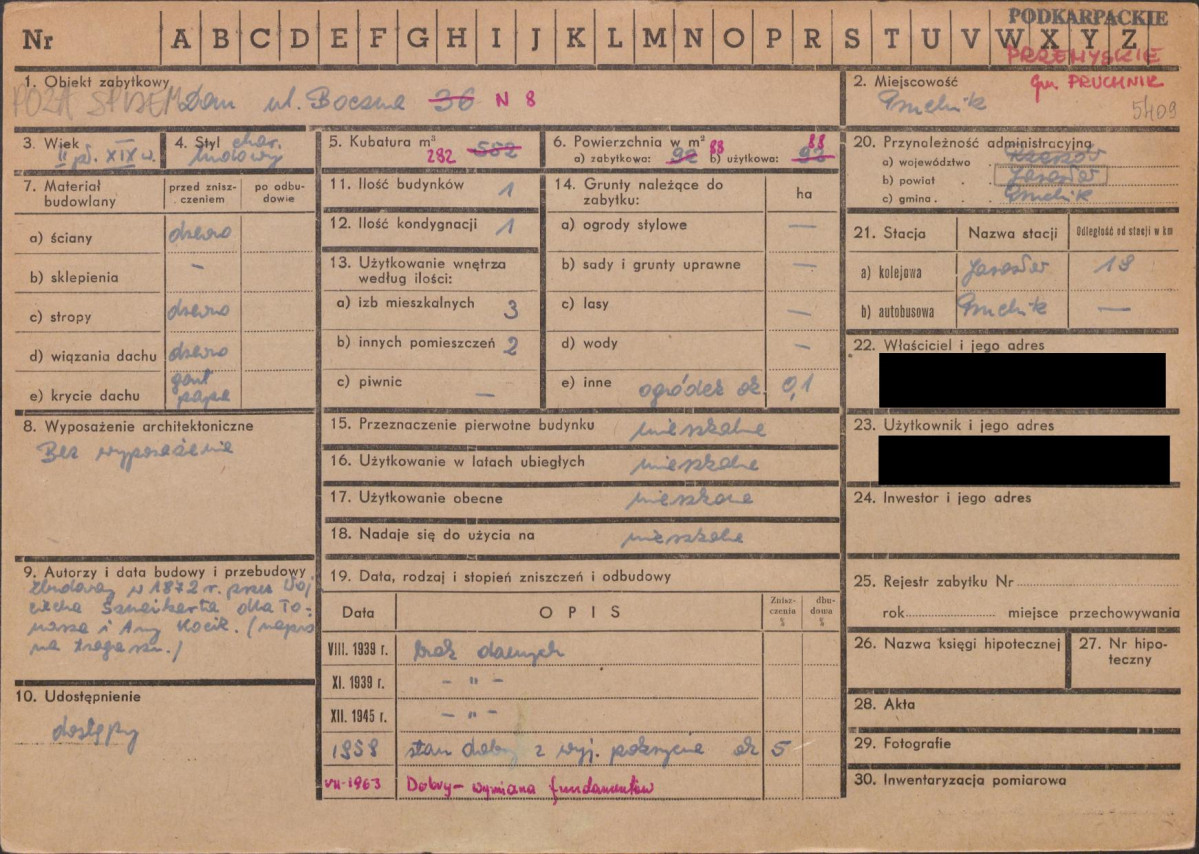 PODKARPACKIE
Nr A B C D E F G H I J K L M N O P R S T U V W X Y Z
PRZEMYSKIE
gm. PRUCHNIK
1. Obiekt zabytkowy
POZA SPISEM Dom ul. Boczna 36 N 8
2. Miejscowość
Pruchnik
5409
3. Wiek
II poł. XIX w.
4. Styl char. ludowy
5. Kubatura m³
282 552
6. Powierzchnia w m²
a) zabytkowa: 92 88 b) użytkowa: 92 88
7. Materiał budowlany
przed zniszczeniem
po odbudowie
a) ściany drewno
b) sklepienia –
c) stropy drewno
d) wiązania dachu drewno
e) krycie dachu gont papa
8. Wyposażenie architektoniczne
Bez wyposażenia
9. Autorzy i data budowy i przebudowy
Zbudowany w 1872 r. przez Woj
ciecha Sznajkarta dla To-
masza i Anny Kocik. (napis
na tragarzu.)
10. Udostępnienie
dostępny
11. Ilość budynków 1
12. Ilość kondygnacji 1
13. Użytkowanie wnętrza
według ilości:
a) izb mieszkalnych 3
b) innych pomieszczeń 2
c) piwnic —
14. Grunty należące do
zabytku:
ha
a) ogrody stylowe —
b) sady i grunty uprawne —
c) lasy —
d) wody —
e) inne ogródek ok 0,1
15. Przeznaczenie pierwotne budynku mieszkalne
16. Użytkowanie w latach ubiegłych mieszkalne
17. Użytkowanie obecne mieszkalne
18. Nadaje się do użycia na mieszkalne
19. Data, rodzaj i stopień zniszczeń i odbudowy
Data OPIS
Zniszczenia %
dbudowa %
VIII. 1939 r. brak danych
XI. 1939 r. – " –
XII. 1945 r. – " –
1959 stan dobry z wyj. pokrycia ok 5
VII-1963 Dobry – wymiana fundamentów
20. Przynależność administracyjna
a) województwo Rzeszów
b) powiat Jarosław
c) gmina Pruchnik
21. Stacja
Nazwa stacji
Odległość od stacji w km
a) kolejowa Jarosław 19
b) autobusowa Pruchnik —
22. Właściciel i jego adres
23. Użytkownik i jego adres
24. Inwestor i jego adres
25. Rejestr zabytku Nr
rok miejsce przechowywania
26. Nazwa księgi hipotecznej
27. Nr hipo-
teczny
28. Akta
29. Fotografie
30. Inwentaryzacja pomiarowa